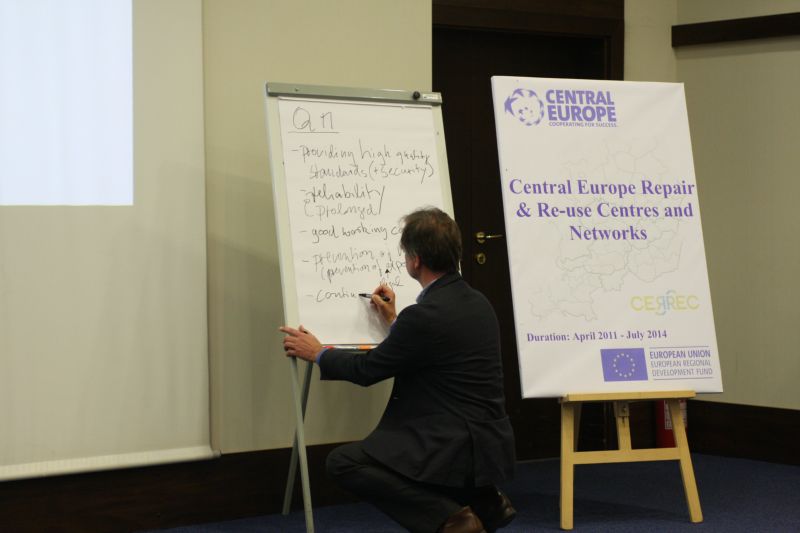 QM
- providing high quality
standards (+ security)
- reliability
(prolonged
- good working
- prevention of
(prevention of
- contin
CENTRAL
EUROPE
COOPERATING FOR SUCCESS.
Central Europe Repair
& Re-use Centres and
Networks
CERREC
Duration: April 2011 - July 2014
EUROPEAN UNION
EUROPEAN REGIONAL
DEVELOPMENT FUND